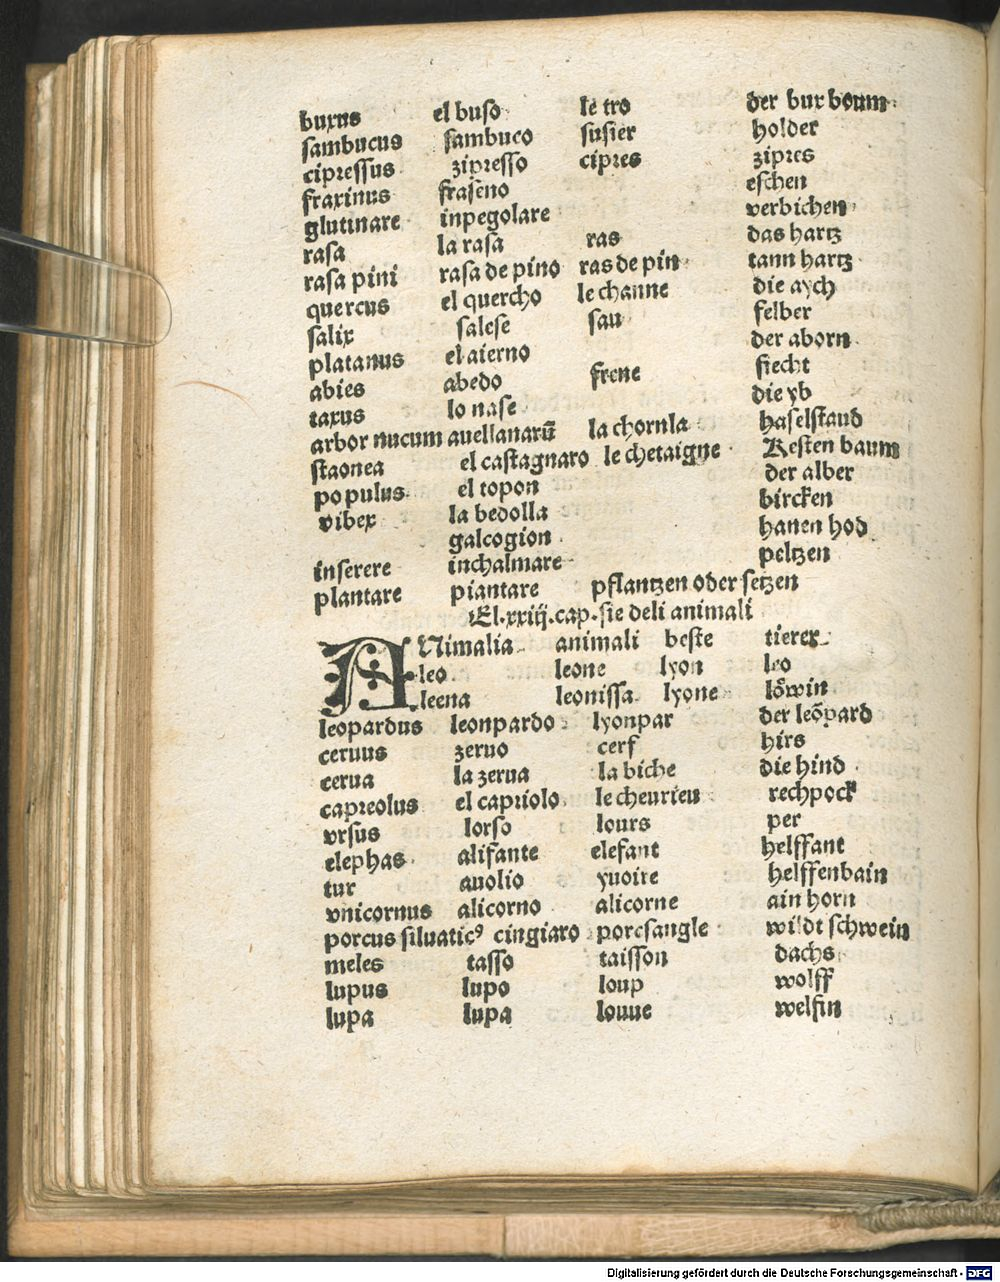 buxus el buso le tro der bux boum
sambucus sambuco susier holder
cipressus zipresso cipres zipres
fraxinus fraseno eschen
glutinare inpegolare verbichen
rasa la rasa ras das hartz
rasa pini rasa de pino ras de pin tann hartz
quercus el quercho le channe die aych
salix salese sau felber
platanus el aierno der aborn
abies abedo frene fiecht
taxus lo nase die yb
arbor nucum auellanarū la chornla haselstaud
staonea el castagnaro le chetaigne Kesten baum
populus el topon der alber
vibex la bedolla bircken
galcogion hanen hod
inserere inchalmare peltzen
plantare piantare pflantzen oder setzen
El.xxiij.cap.sie deli animali
ANimalia animali beste tierer
leo leone lyon leo
leena leonissa lyone löwin
leopardus leonpardo lyonpar der leõpard
ceruus zeruo cerf hirs
cerua la zerua la biche die hind
capreolus el capriolo le cheurieu rechpock
vrsus lorso lours per
elephas alifante elefant helffant
tur auolio yuoire helffenbain
vnicornus alicorno alicorne ain horn
porcus siluaticꝰ cingiaro porcsangle wildt schwein
meles tasso taisson dachs
lupus lupo loup wolff
lupa lupa louue welfin
Digitalisierung gefördert durch die Deutsche Forschungsgemeinschaft - DFG